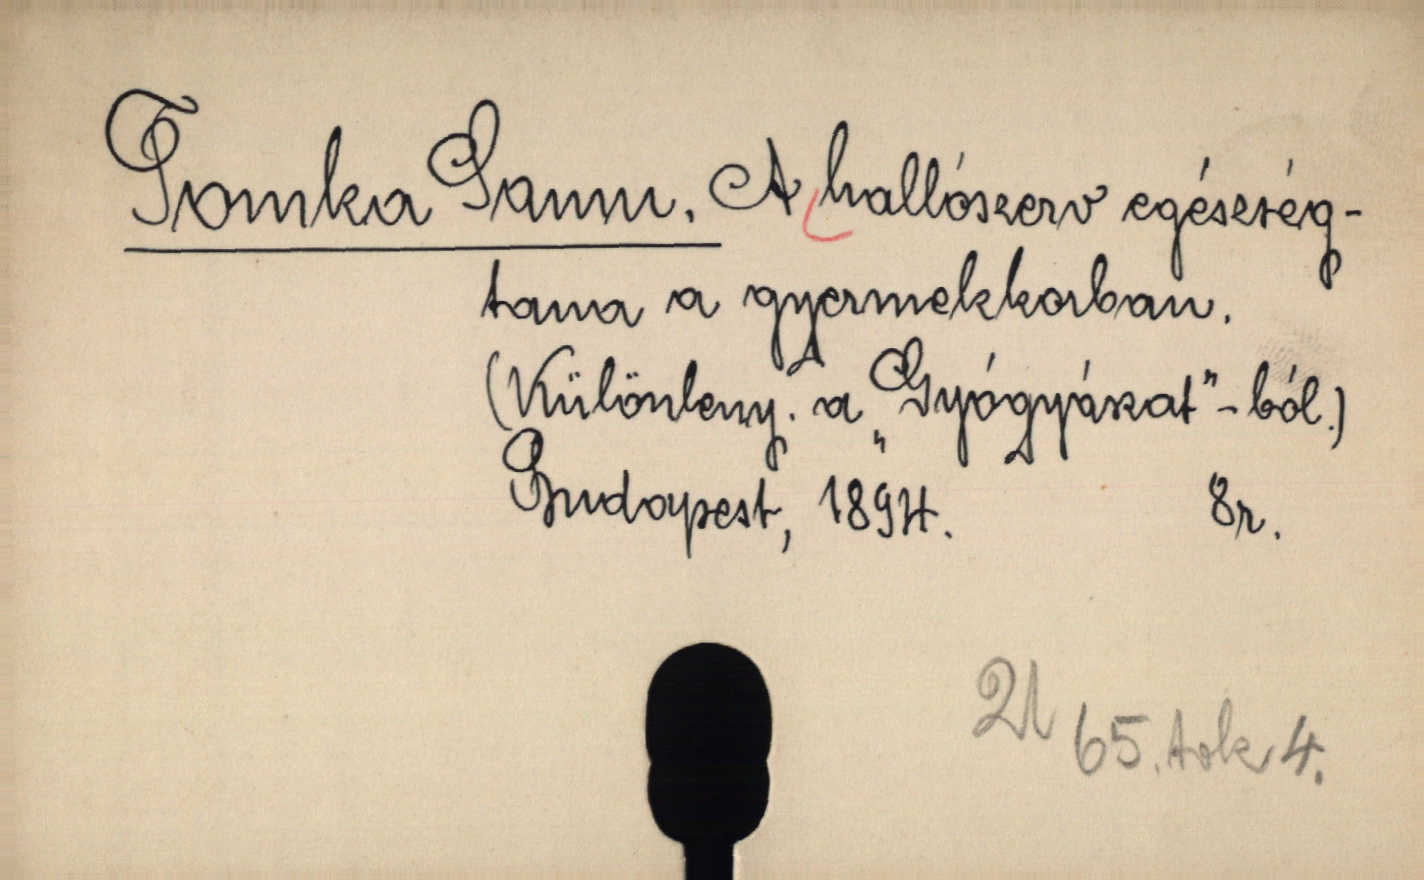 Tomka Samu. A hallószerv egészség-
tana a gyermekkorban.
(Különleny. a „Gyógyászat"-ból.)
Budapest, 1894. 8r.
65. tok 4.